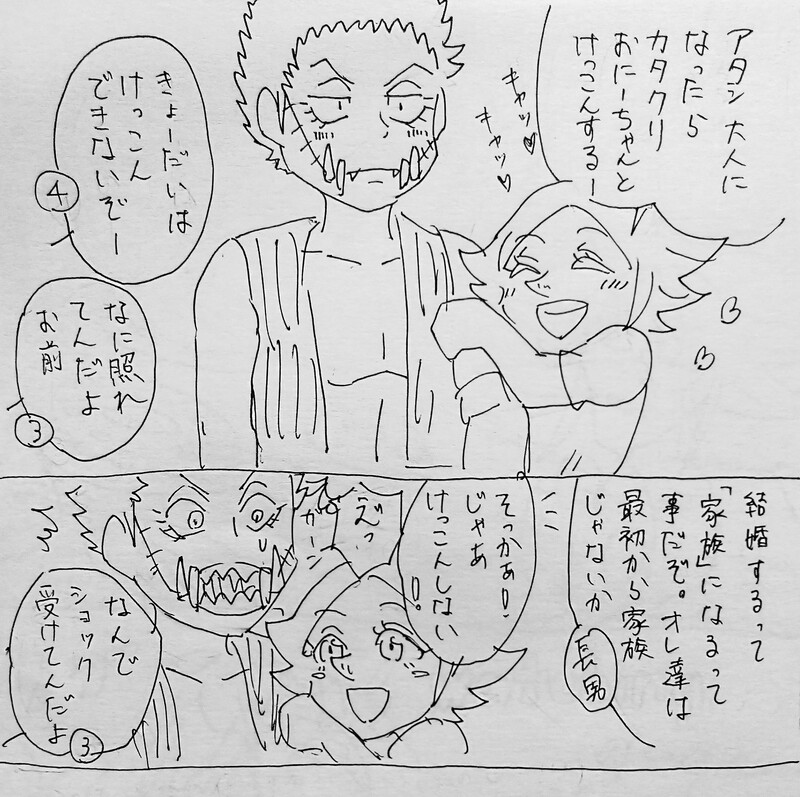 アタシ 大人に
なったら
カタクリ
おにーちゃんと
けっこんするー
キャッ♡
キャッ♡
きょーだいは
けっこん
できないぞー
④
なに照れ
てんだよ
お前
③
結婚するって
「家族」になるって
事だぞ。オレ達は
最初から家族
じゃないか
長男
そっかぁ!
じゃあ
けっこんしない
!
えっ
ガーン
なんで
ショック
受けてんだよ
③